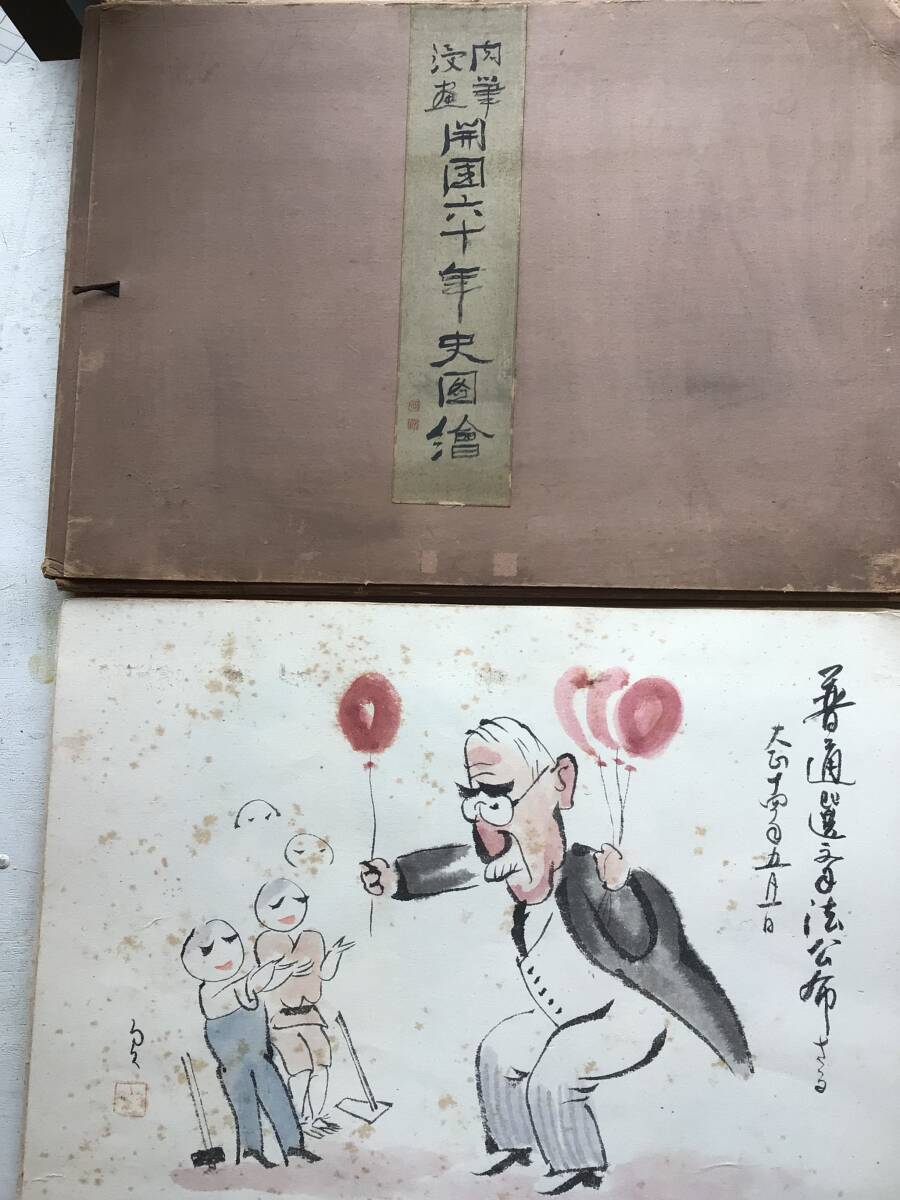 肉筆
漫画
開国六十年史図繪
普通選挙法公布さる
大正十四年五月一日